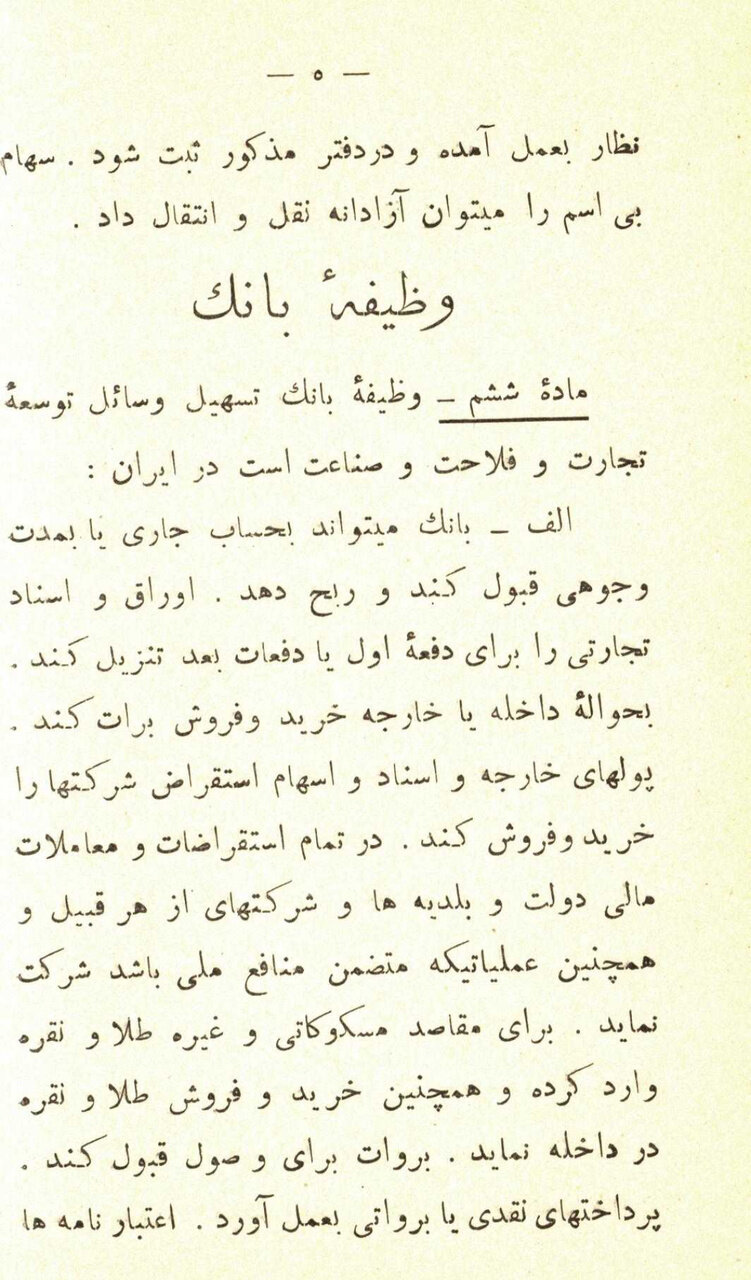 — ٥ —
نظار بعمل آمده و دردفتر مذکور ثبت شود . سهام
بی اسم را میتوان آزادانه نقل و انتقال داد .
وظیفهٔ بانك
مادهٔ ششم ــ وظیفهٔ بانك تسهیل وسائل توسعهٔ
تجارت و فلاحت و صناعت است در ایران :
الف ــ بانك میتواند بحساب جاری یا بمدت
وجوهی قبول کند و ربح دهد . اوراق و اسناد
تجارتی را برای دفعهٔ اول یا دفعات بعد تنزیل کند .
بحوالهٔ داخله یا خارجه خرید وفروش برات کند .
پولهای خارجه و اسناد و اسهام استقراض شرکتها را
خرید وفروش کند . در تمام استقراضات و معاملات
مالی دولت و بلدیه ها و شرکتهای از هر قبیل و
همچنین عملیاتیکه متضمن منافع ملی باشد شرکت
نماید . برای مقاصد مسکوکاتی و غیره طلا و نقره
وارد کرده و همچنین خرید و فروش طلا و نقره
در داخله نماید . بروات برای وصول قبول کند .
پرداختهای نقدی یا برواتی بعمل آورد . اعتبار نامه ها